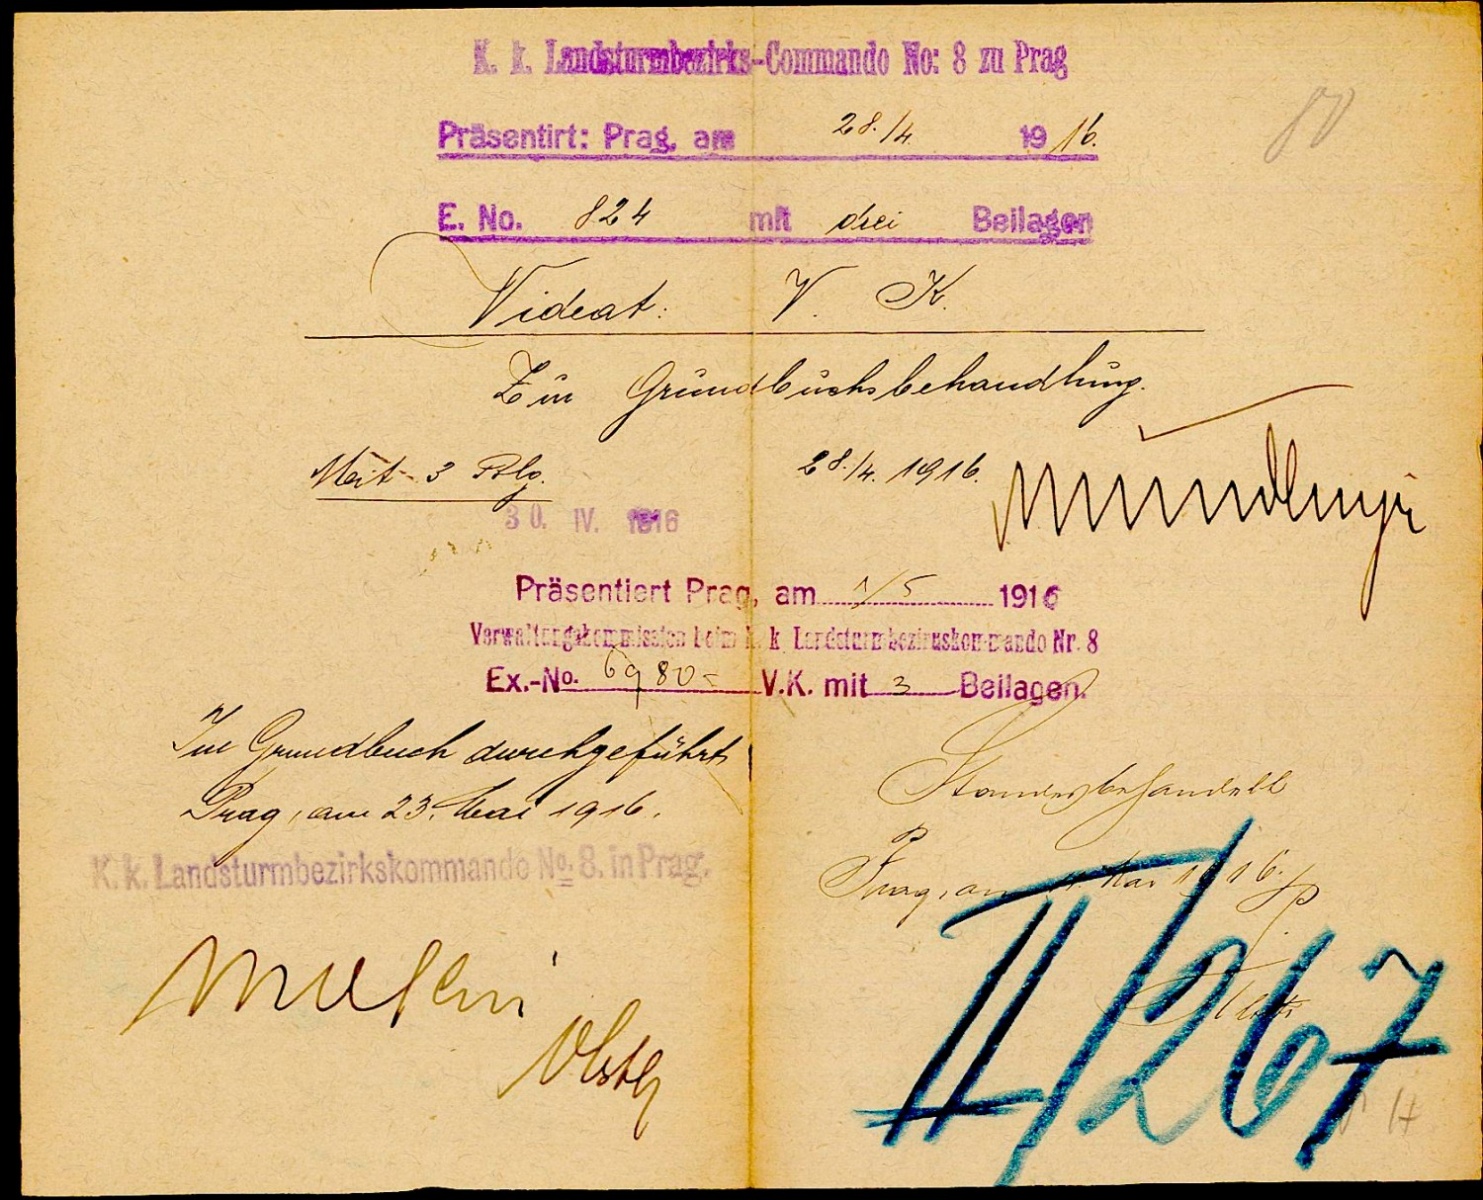 K. k. Landsturmbezirks-Commando No: 8 zu Prag
80
Präsentirt: Prag, am 28./4. 1916.
E. No. 824 mit drei Beilagen
Videat: V. K.
Zur Grundbuchsbehandlung.
Mit 3 Blg. 28./4. 1916.
30. IV. 1916
Präsentiert Prag, am 1/5 1916
Verwaltungskommission beim k. k. Landsturmbezirkskommando Nr. 8
Ex.-No. 6980 V.K. mit 3 Beilagen.
Im Grundbuch durchgeführt
Prag, am 23. Mai 1916.
Standesbehandelt
Prag, am Mai 1916.
K. k. Landsturmbezirkskommando No. 8. in Prag.
II/267